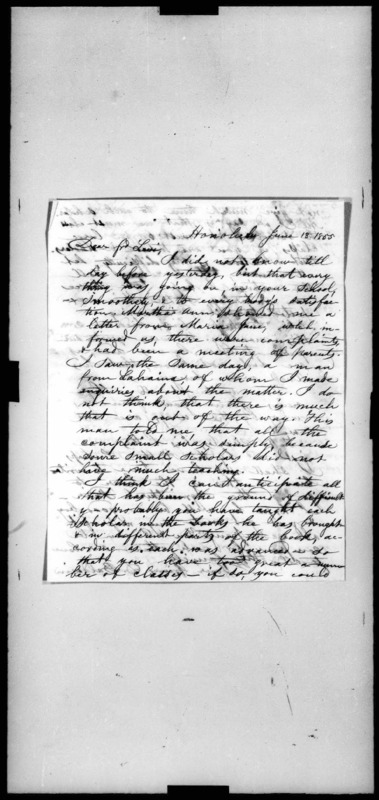 Honolulu June 18 1855
Dear fr Levi,
I did not know till
day before yesterday, but that every
thing was going on, in your school,
smoothly, & to every body's satisfac
tion. Martha Ann showed me a
letter from Maria Jane, which in
formed us, there were complaints,
& had been a meeting of parents.
I saw, the same day, a man
from Lahaina, of whom I made
enquiries about the matter. I do
not think that there is much
that is out of the way. This
man told me that all the
complaint was simply because
some small scholars did not
have much teaching.
I think I can anticipate all
that has been the ground of difficult
y - probably you have taught each
scholar in the books he has brought
& in different parts of the book, ac
cording as each was advanced & so
that you have too great a num
ber of classes - if so, you could